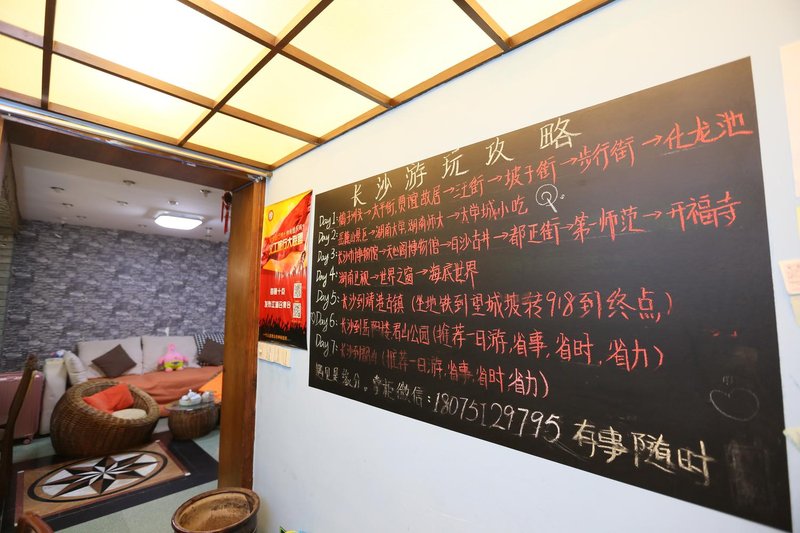 长沙游玩攻略
Day 1: 橘子洲头→太平街,贾谊故居→三王街→坡子街→步行街→化龙池
Day 2: 岳麓山景区→湖南大学,湖南师大→大学城小吃
Day 3: 长沙市博物馆→天心阁博物馆→白沙古井→都正街→第一师范→开福寺
Day 4: 湖南卫视→世界之窗→海底世界
Day 5: 长沙到靖港古镇(坐地铁到望城坡转918到终点,)
Day 6: 长沙到岳阳楼,君山公园(推荐一日游,省事,省时,省力)
Day 7: 长沙到韶山(推荐一日游,省事,省时省力)
遇见是缘分。掌柜微信:18075129795 有事随时